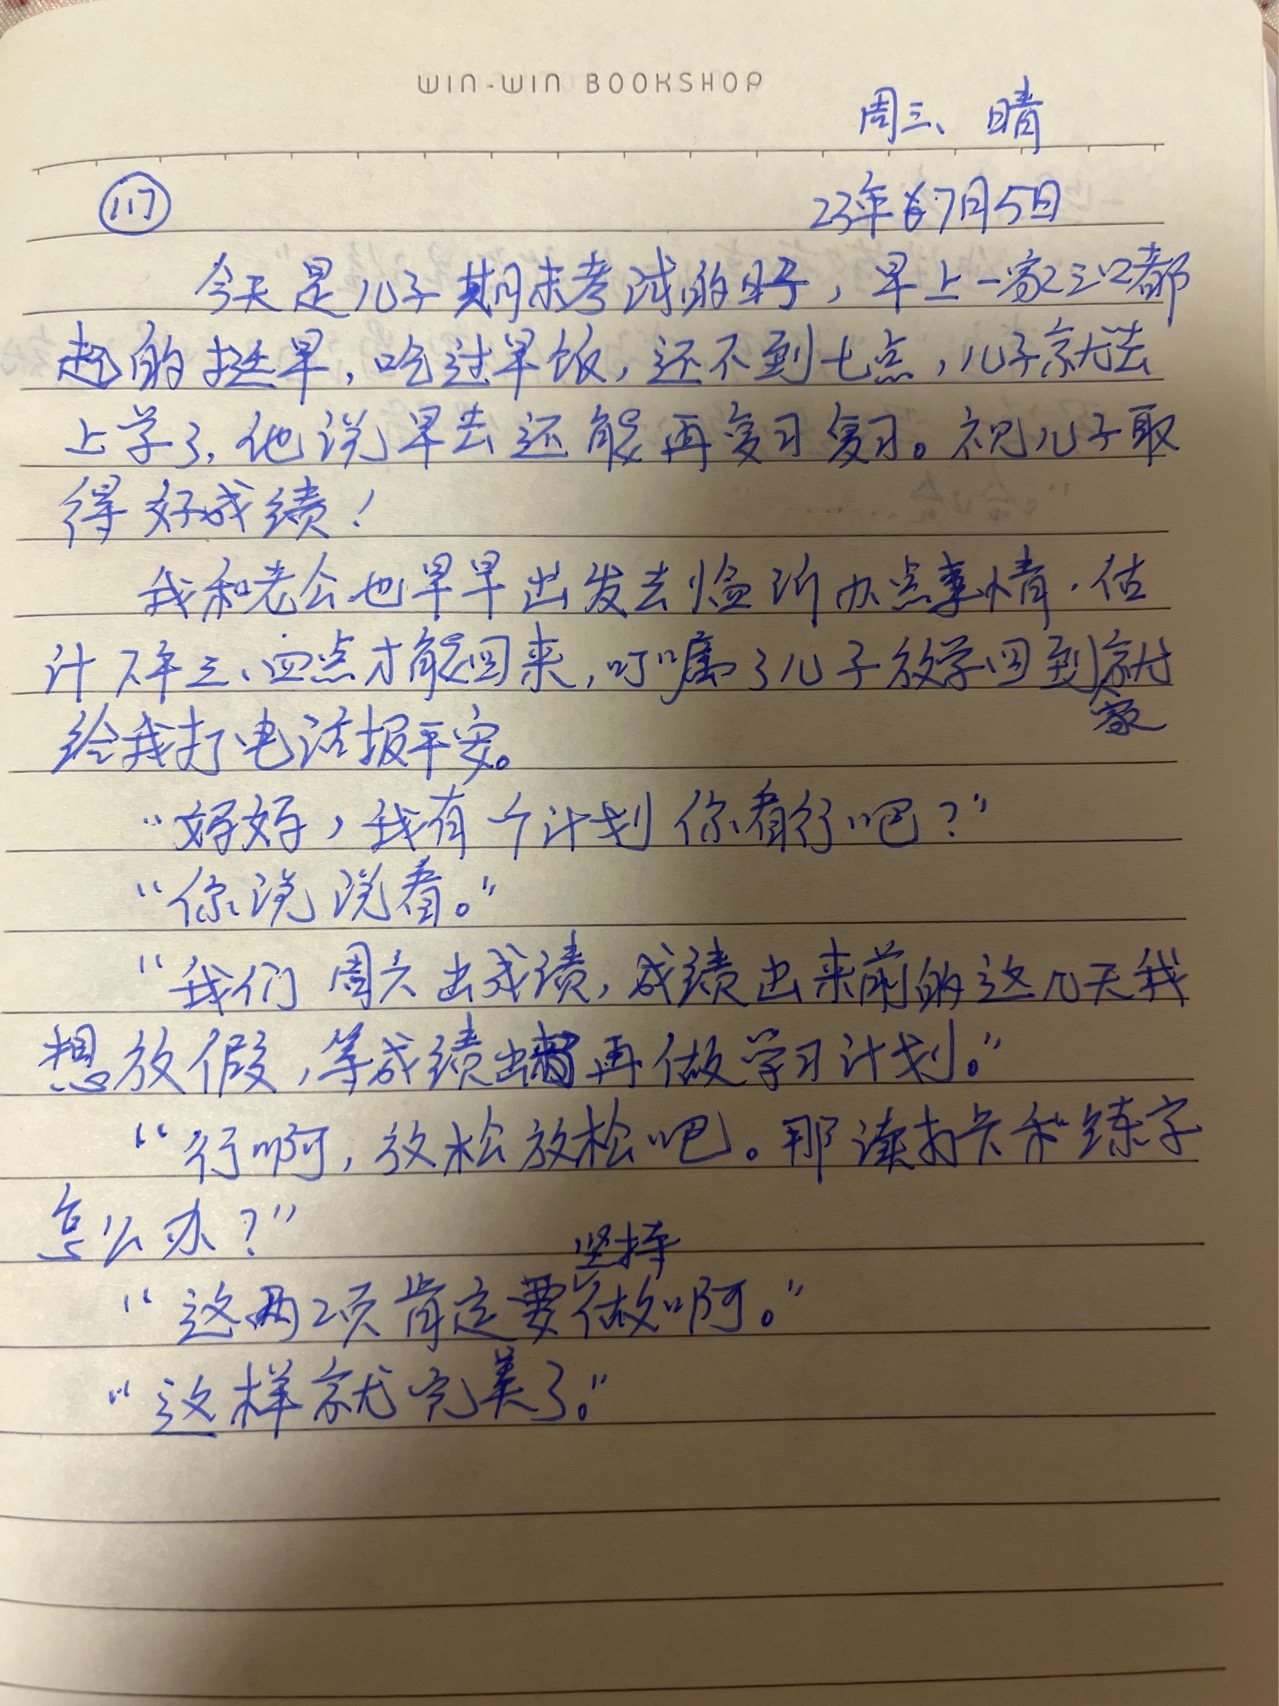 WIN-WIN BOOKSHOP
周三、晴
117
23年7月5日
今天是儿子期末考试的日子，早上一家三口都
起的挺早，吃过早饭，还不到七点，儿子就去
上学了，他说早去还能再复习复习。祝儿子取
得好成绩！
我和老公也早早出发去临沂办点事情，估
计下午三、四点才能回来，叮嘱了儿子放学回到家就
给我打电话报平安。
“好好，我有个计划你看行吧？”
“你说说看。”
“我们周六出成绩，成绩出来前的这几天我
想放假，等成绩出来再做学习计划。”
“行啊，放松放松吧。那读打卡和练字
怎么办？”
“这两项肯定要坚持做啊。”
“这样就完美了。”